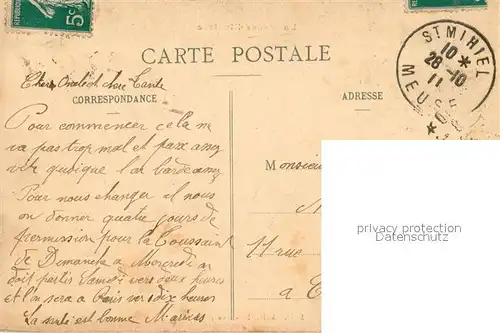 5c
CARTE POSTALE
ST MIHIEL
10 *
28-10
11
MEUSE
Cher Oncle et chère Tante
CORRESPONDANCE
ADRESSE
Pour commencer cela ne
va pas trop mal et passe assez
vite quoique l'on
Pour nous changer il nous
on donner quatre jours de
permission pour la Toussaint
de Dimanche a Mercredi on
doit partir Samedi vers deux heures
et l'on sera a Paris vers dix heures
La santé est bonne
Monsieur
11 rue
a
privacy protection
Datenschutz